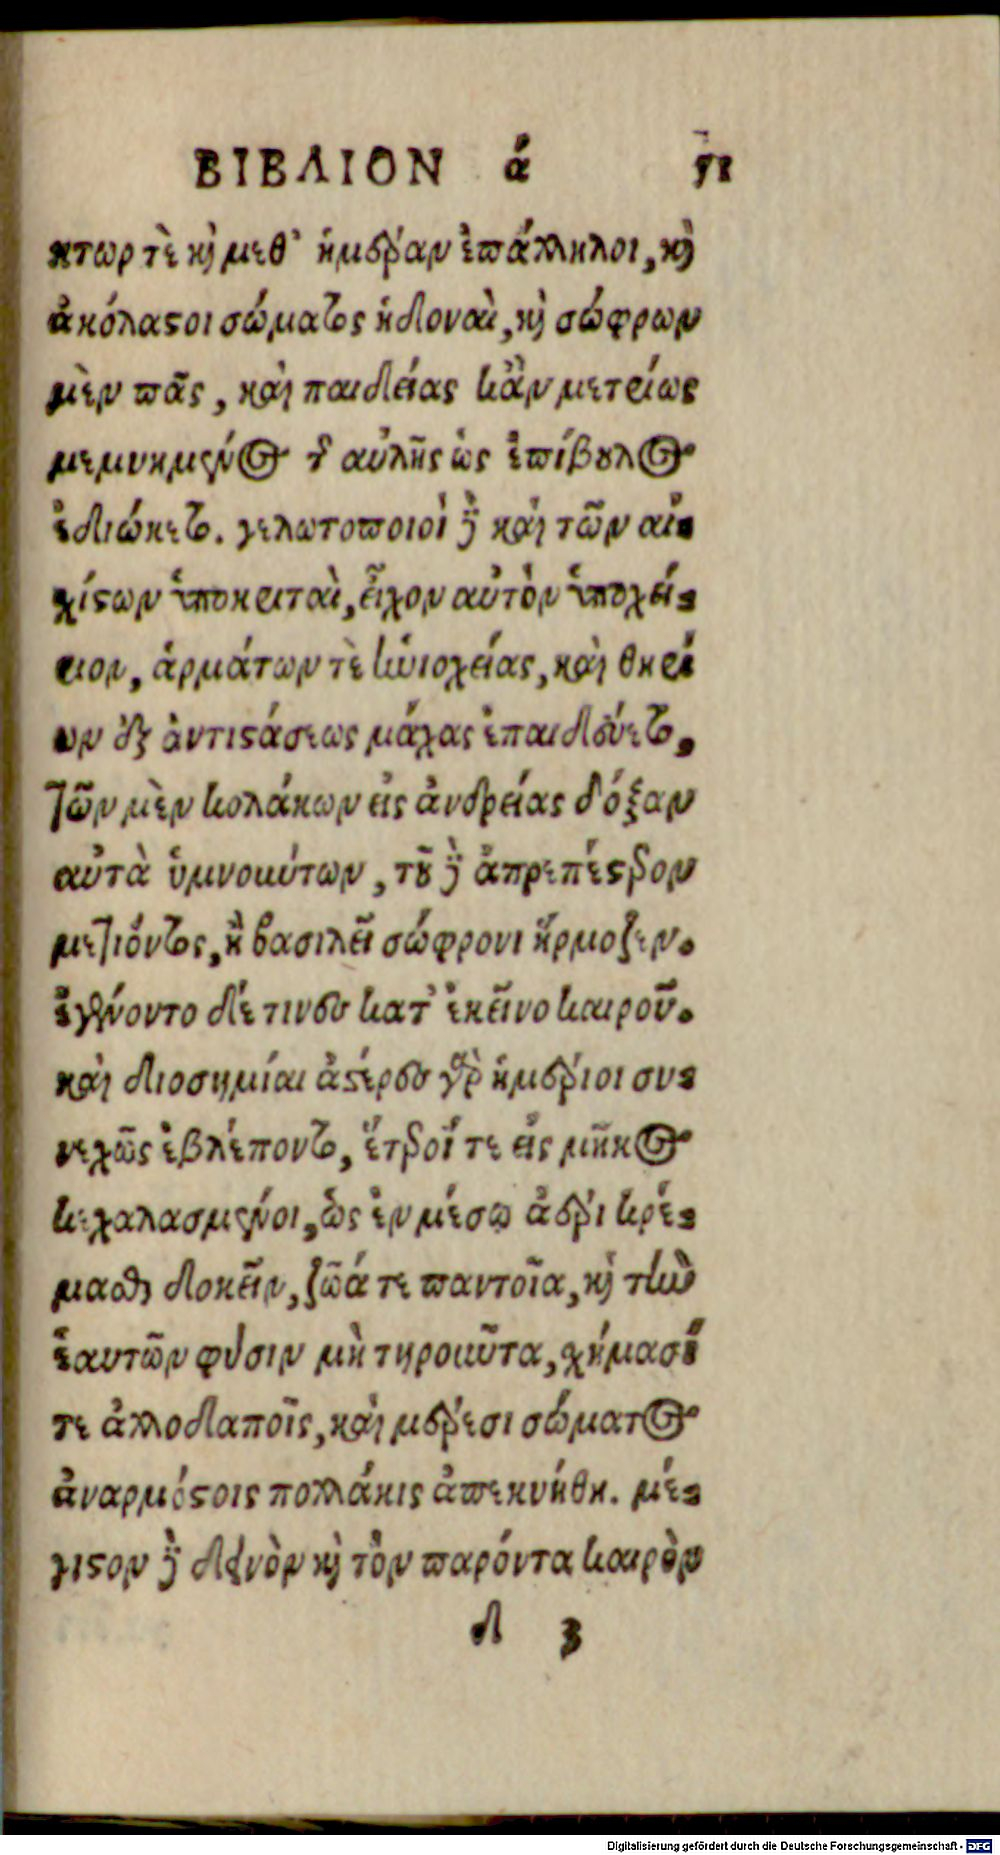 ΒΙΒΛΙΟΝ ά 51
κτωρ τὲ καὶ μεθ' ἡμέραν ἐπάλληλοι, καὶ
ἀκόλαστοι σώματος ἡδοναὶ, καὶ σώφρων
μὲν πᾶς, καὶ παιδείας κἂν μετρίως
μεμνημένος τῆς αὐλῆς ὡς ἐπίβουλος
ἐδιώκετο. γελωτοποιοὶ δὲ καὶ τῶν αἰ-
χίστων ὑποκριταὶ, εἶχον αὐτὸν ὑποχεί-
ριον, ἁρμάτων τὲ ἡνιοχείας, καὶ θηρί
ων ἐξ ἀντιστάσεως μάχας ἐπαιδεύετο,
τῶν μὲν κολάκων εἰς ἀνδρείας δόξαν
αὐτὰ ὑμνούντων, τοῦ δὲ ἀπρεπέστερον
μετιόντος, ἢ βασιλεῖ σώφρονι ἥρμοζεν.
ἐγένοντο δέ τινες κατ' ἐκεῖνο καιροῦ.
καὶ διοσημίαι ἀστέρες γὰρ ἡμέριοι συν-
νεχῶς ἐβλέποντο, ἕτεροί τε εἰς μῆκος
κεχαλασμένοι, ὡς ἐν μέσῳ ἀέρι κρέ-
μασθαι δοκεῖν, ζῶά τε παντοῖα, καὶ τὴν
ἑαυτῶν φύσιν μὴ τηροῦντα, χήμασί
τε ἀλλοδαποῖς, καὶ μέρεσι σώματος
ἀναρμόστοις πολλάκις ἀπεκυήθη. μέ-
γιστον δὲ δεινὸν καὶ τὸν παρόντα καιρὸν
δ 3
Digitalisierung gefördert durch die Deutsche Forschungsgemeinschaft - DFG